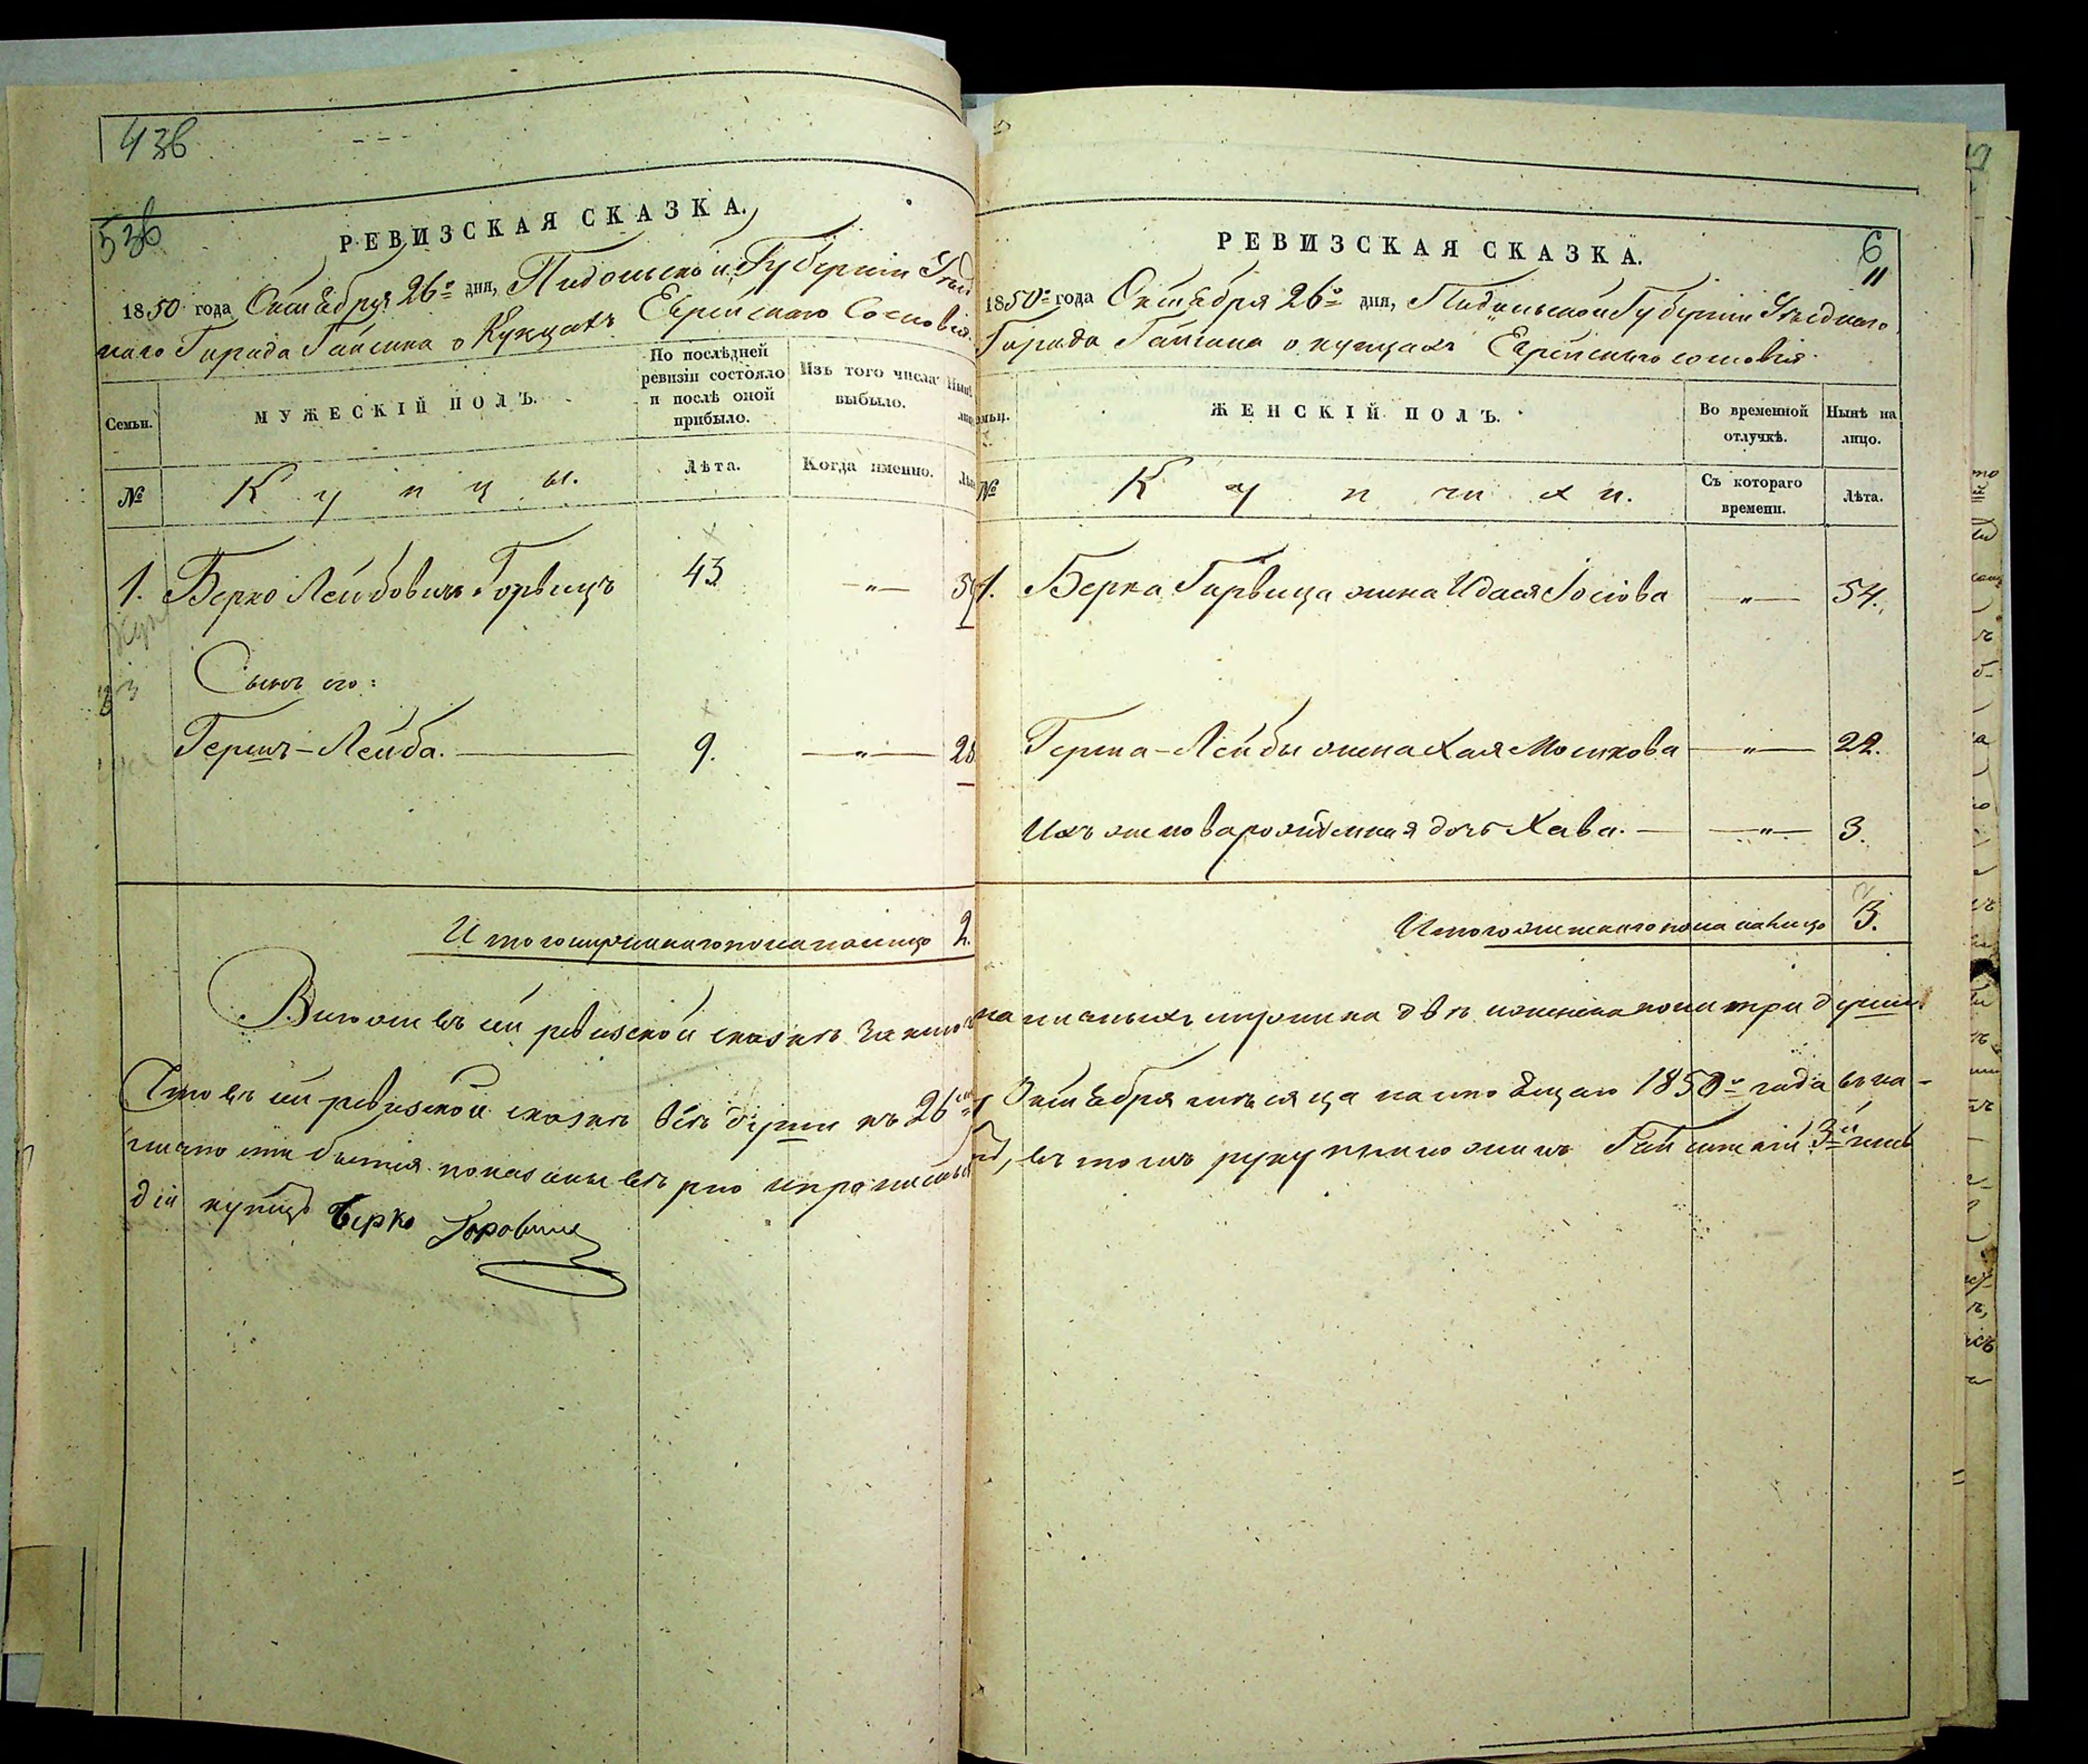 436
536
РЕВИЗСКАЯ СКАЗКА.
1850 года Октября 26го дня, Подольской Губернии Уезд
наго Города Гайсина о Купцахъ Еврейскаго Сословія.
Семьи.
МУЖЕСКІЙ ПОЛЪ.
По послѣдней
ревизіи состояло
и послѣ оной
прибыло.
Изъ того числа
выбыло.
№
Купцы.
Лѣта.
Когда именно.
1. Берко Лейбовичъ Горвицъ 43 — " —
Сынъ его:
Гершъ-Лейба. 9. — " — 28
Итого мужескаго пола на лицо 2.
Всего въ сей ревизской сказкѣ
Что въ сей ревизской сказкѣ всѣ души къ 26
показаны въ
дій купецъ Берко Горовицъ
6
11
РЕВИЗСКАЯ СКАЗКА.
1850го года Октября 26го дня, Подольской Губернии Уезднаго
Города Гайсина о купцахъ Еврейскаго сословія.
ЖЕНСКІЙ ПОЛЪ.
Во временной
отлучкѣ.
Нынѣ на
лицо.
№
Купчихи.
Съ котораго
времени.
Лѣта.
1. Берка Горвица жена Идася Іосіова — " — 54.
Герша-Лейбы жена Хая Мошкова — " — 22.
Ихъ же новарожденная дочь Хава. — " — 3.
Итого женскаго пола на лицо 3.
мужеска двѣ и женска пола три души.
Октября мѣсяца настоящаго 1850го года въ на-
въ томъ руку приложилъ Гайсинскій 3й гиль